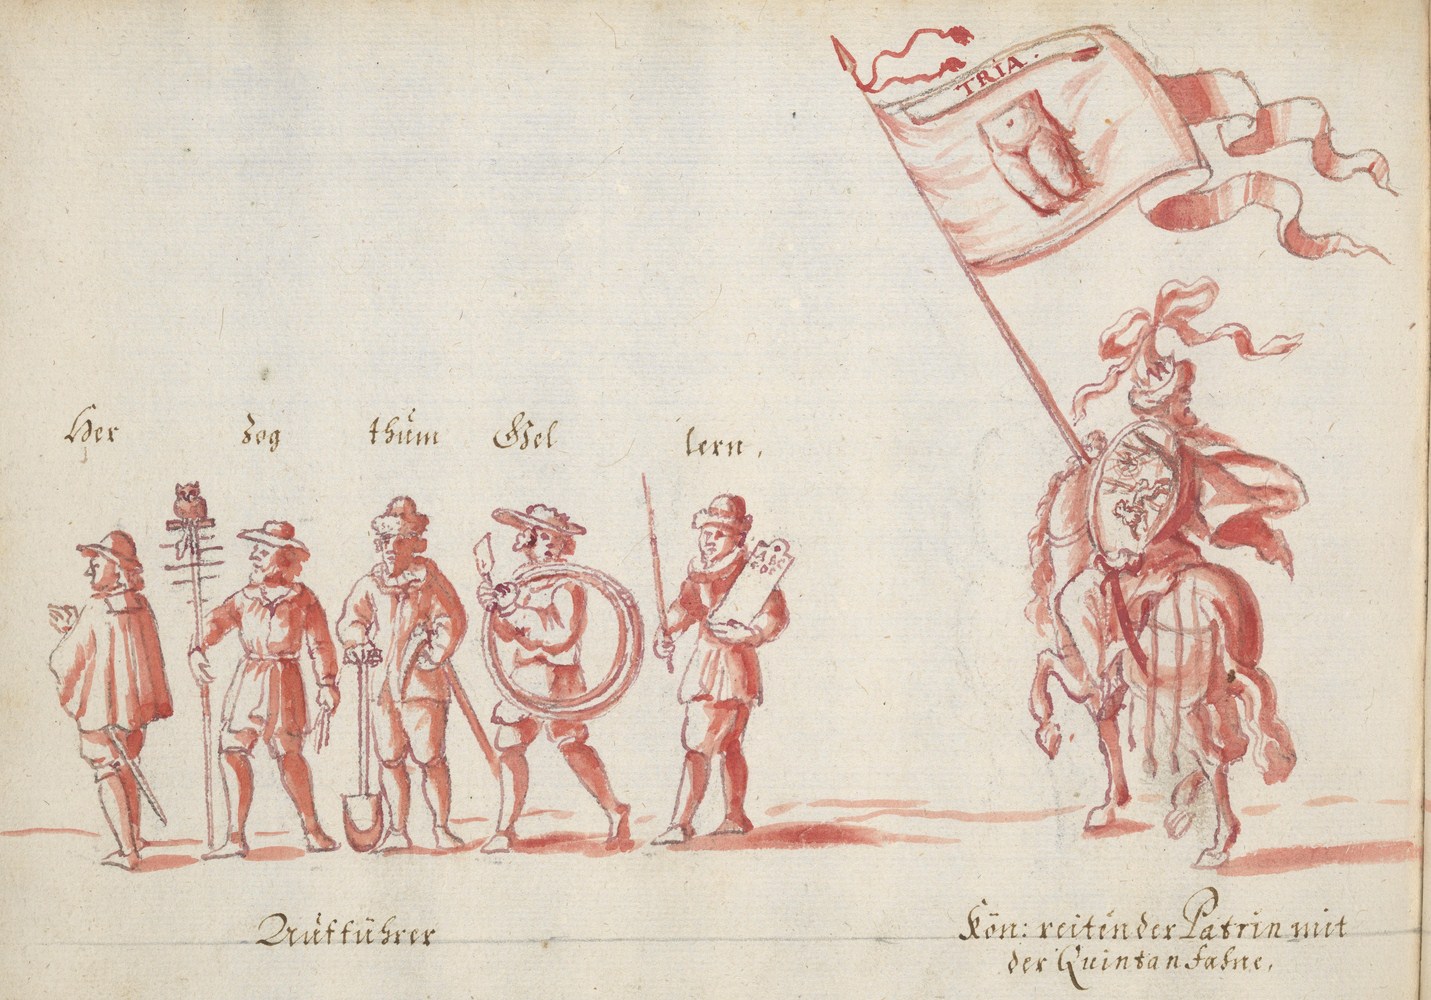 TRIA.
Her zog thům Gel lern,
ABC
Aůfführer
Kön: reitender Patrin mit
der Quintanfahne.